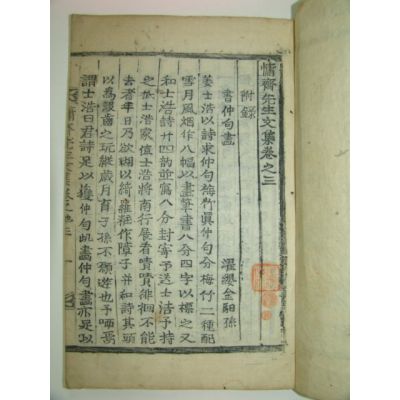 慵齋先生文集卷之二
附錄
書仲句畫 濯纓金馹孫
姜士浩以詩求仲句梅竹眞仲句分梅竹二種配
雪月風烟作八幅以畫筆書八分四字以標之又
和士浩詩廿四韻並寫八分封寄予送士浩予持
之於士浩家値士浩將南行展看嘖嘖徘徊不能
去者年日乃欲糊以綺羅粧作障子并和詩其頭
以爲齒之玩縱歲月育子孫不願也予哂焉
謂士浩曰君詩足以獲仲句此畫仲句畫亦足以